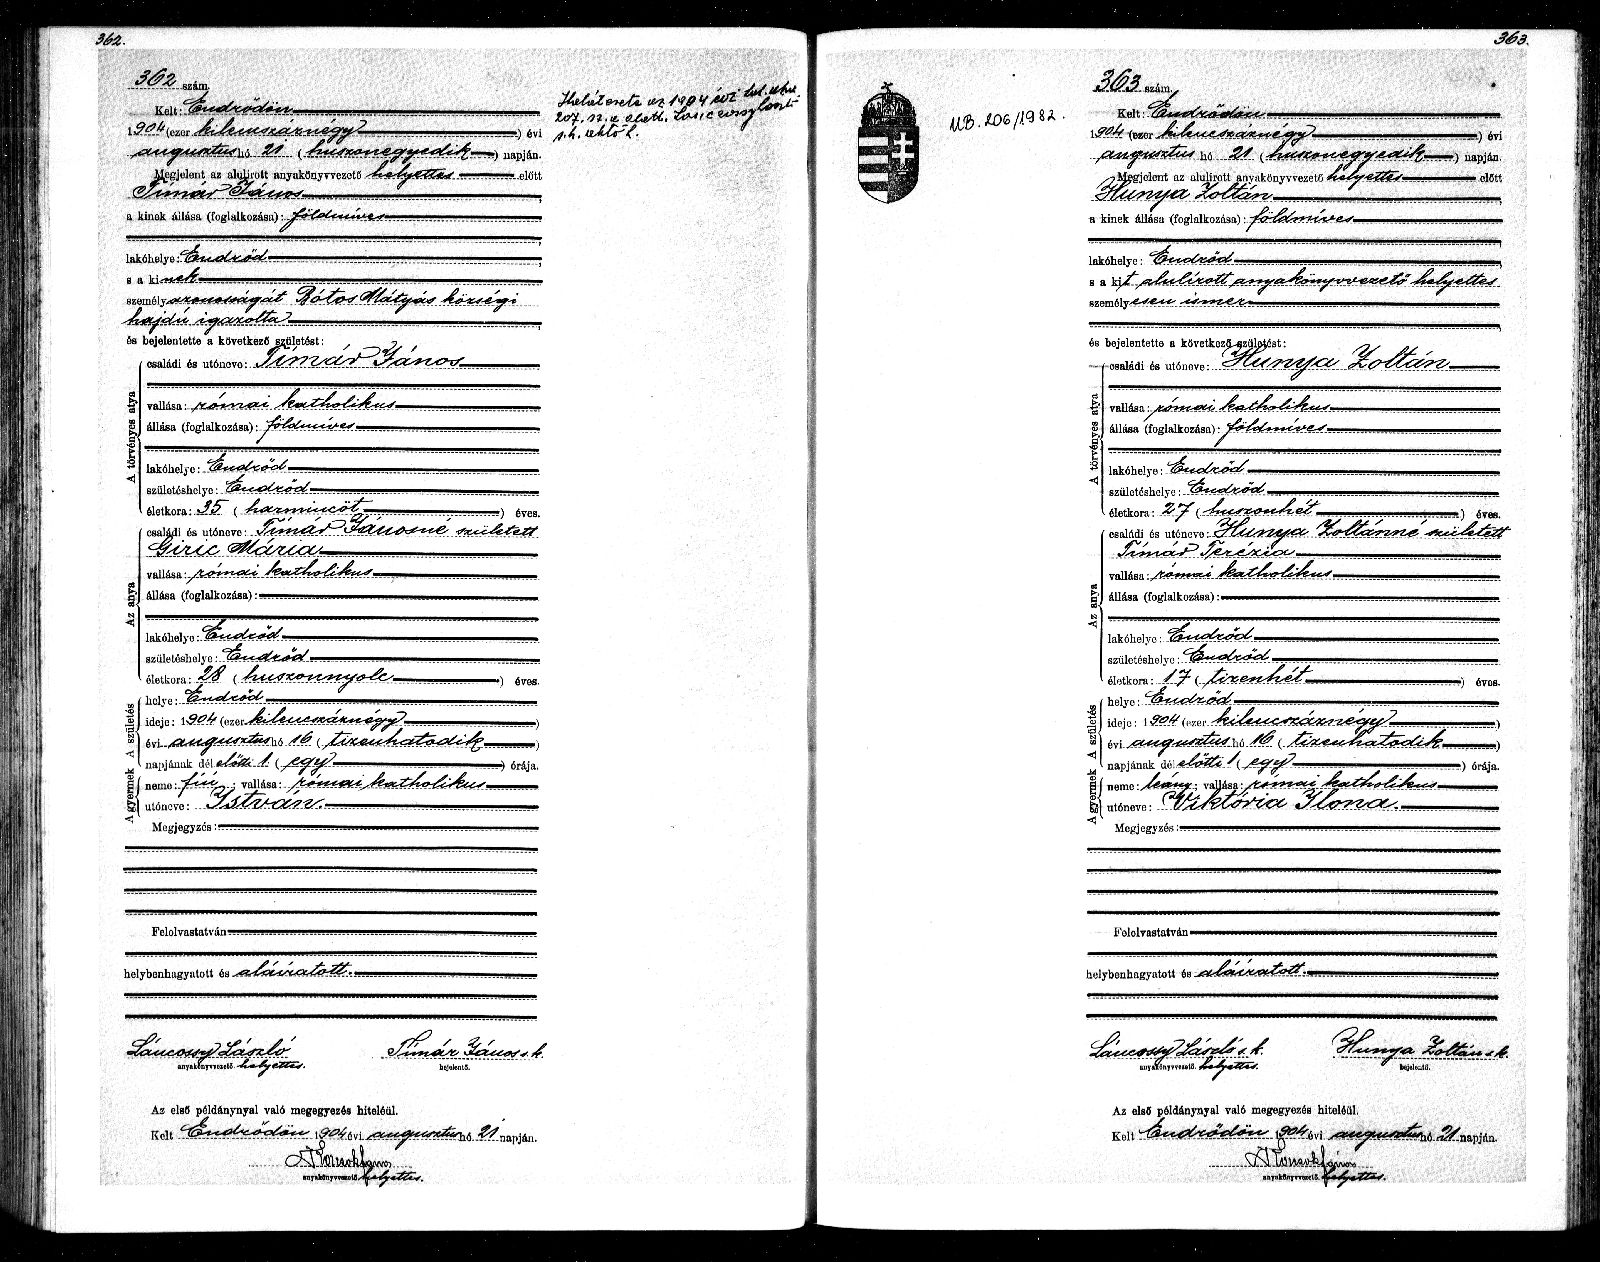 362.
362 szám.
Kelt: Endrődön
1904 (ezer kilencszáznégy) évi
augusztus hó 21 (huszonegyedik) napján.
Megjelent az alulirott anyakönyvvezető helyettes előtt
Tímár János
a kinek állása (foglalkozása): földmíves
lakóhelye: Endrőd
s a kinek
személyazonosságát Bótos Mátyás községi
hajdú igazolta
és bejelentette a következő születést:
A törvényes atya
családi és utóneve: Tímár János
vallása: római katholikus
állása (foglalkozása): földmíves
lakóhelye: Endrőd
születéshelye: Endrőd
életkora: 35 (harmincöt) éves.
Az anya
családi és utóneve: Tímár Jánosné született
Giric Mária
vallása: római katholikus
állása (foglalkozása):
lakóhelye: Endrőd
születéshelye: Endrőd
életkora: 28 (huszonnyolc) éves.
A születés
helye: Endrőd
ideje: 1904 (ezer kilencszáznégy)
évi augusztus hó 16 (tizenhatodik)
napjának dél előtti 1 (egy) órája.
A gyermek
neme: fiú; vallása: római katholikus
utóneve: István.
Megjegyzés:
Felolvastatván
helybenhagyatott és aláíratott.
Láncossy László Tímár János s. k.
anyakönyvvezető helyettes. bejelentő.
Az első példánynyal való megegyezés hiteléül.
Kelt Endrődön 1904 évi augusztus hó 21 napján.
János
anyakönyvvezető helyettes.
az 1904 évi
207.
s.k.
363.
MB. 206/1982.
363 szám.
Kelt: Endrődön
1904 (ezer kilencszáznégy) évi
augusztus hó 21 (huszonegyedik) napján.
Megjelent az alulirott anyakönyvvezető helyettes előtt
Hunya Zoltán
a kinek állása (foglalkozása): földmíves
lakóhelye: Endrőd
s a kit alulírott anyakönyvvezető helyettes
személyesen ismer
és bejelentette a következő születést:
A törvényes atya
családi és utóneve: Hunya Zoltán
vallása: római katholikus
állása (foglalkozása): földmíves
lakóhelye: Endrőd
születéshelye: Endrőd
életkora: 27 (huszonhét) éves.
Az anya
családi és utóneve: Hunya Zoltánné született
Tímár Terézia
vallása: római katholikus
állása (foglalkozása):
lakóhelye: Endrőd
születéshelye: Endrőd
életkora: 17 (tizenhét) éves.
A születés
helye: Endrőd
ideje: 1904 (ezer kilencszáznégy)
évi augusztus hó 16 (tizenhatodik)
napjának dél előtti 1 (egy) órája.
A gyermek
neme: leány; vallása: római katholikus
utóneve: Viktória Ilona.
Megjegyzés:
Felolvastatván
helybenhagyatott és aláíratott.
Láncossy László s. k. Hunya Zoltán s. k.
anyakönyvvezető helyettes. bejelentő.
Az első példánynyal való megegyezés hiteléül.
Kelt Endrődön 1904 évi augusztus hó 21 napján.
János
anyakönyvvezető helyettes.